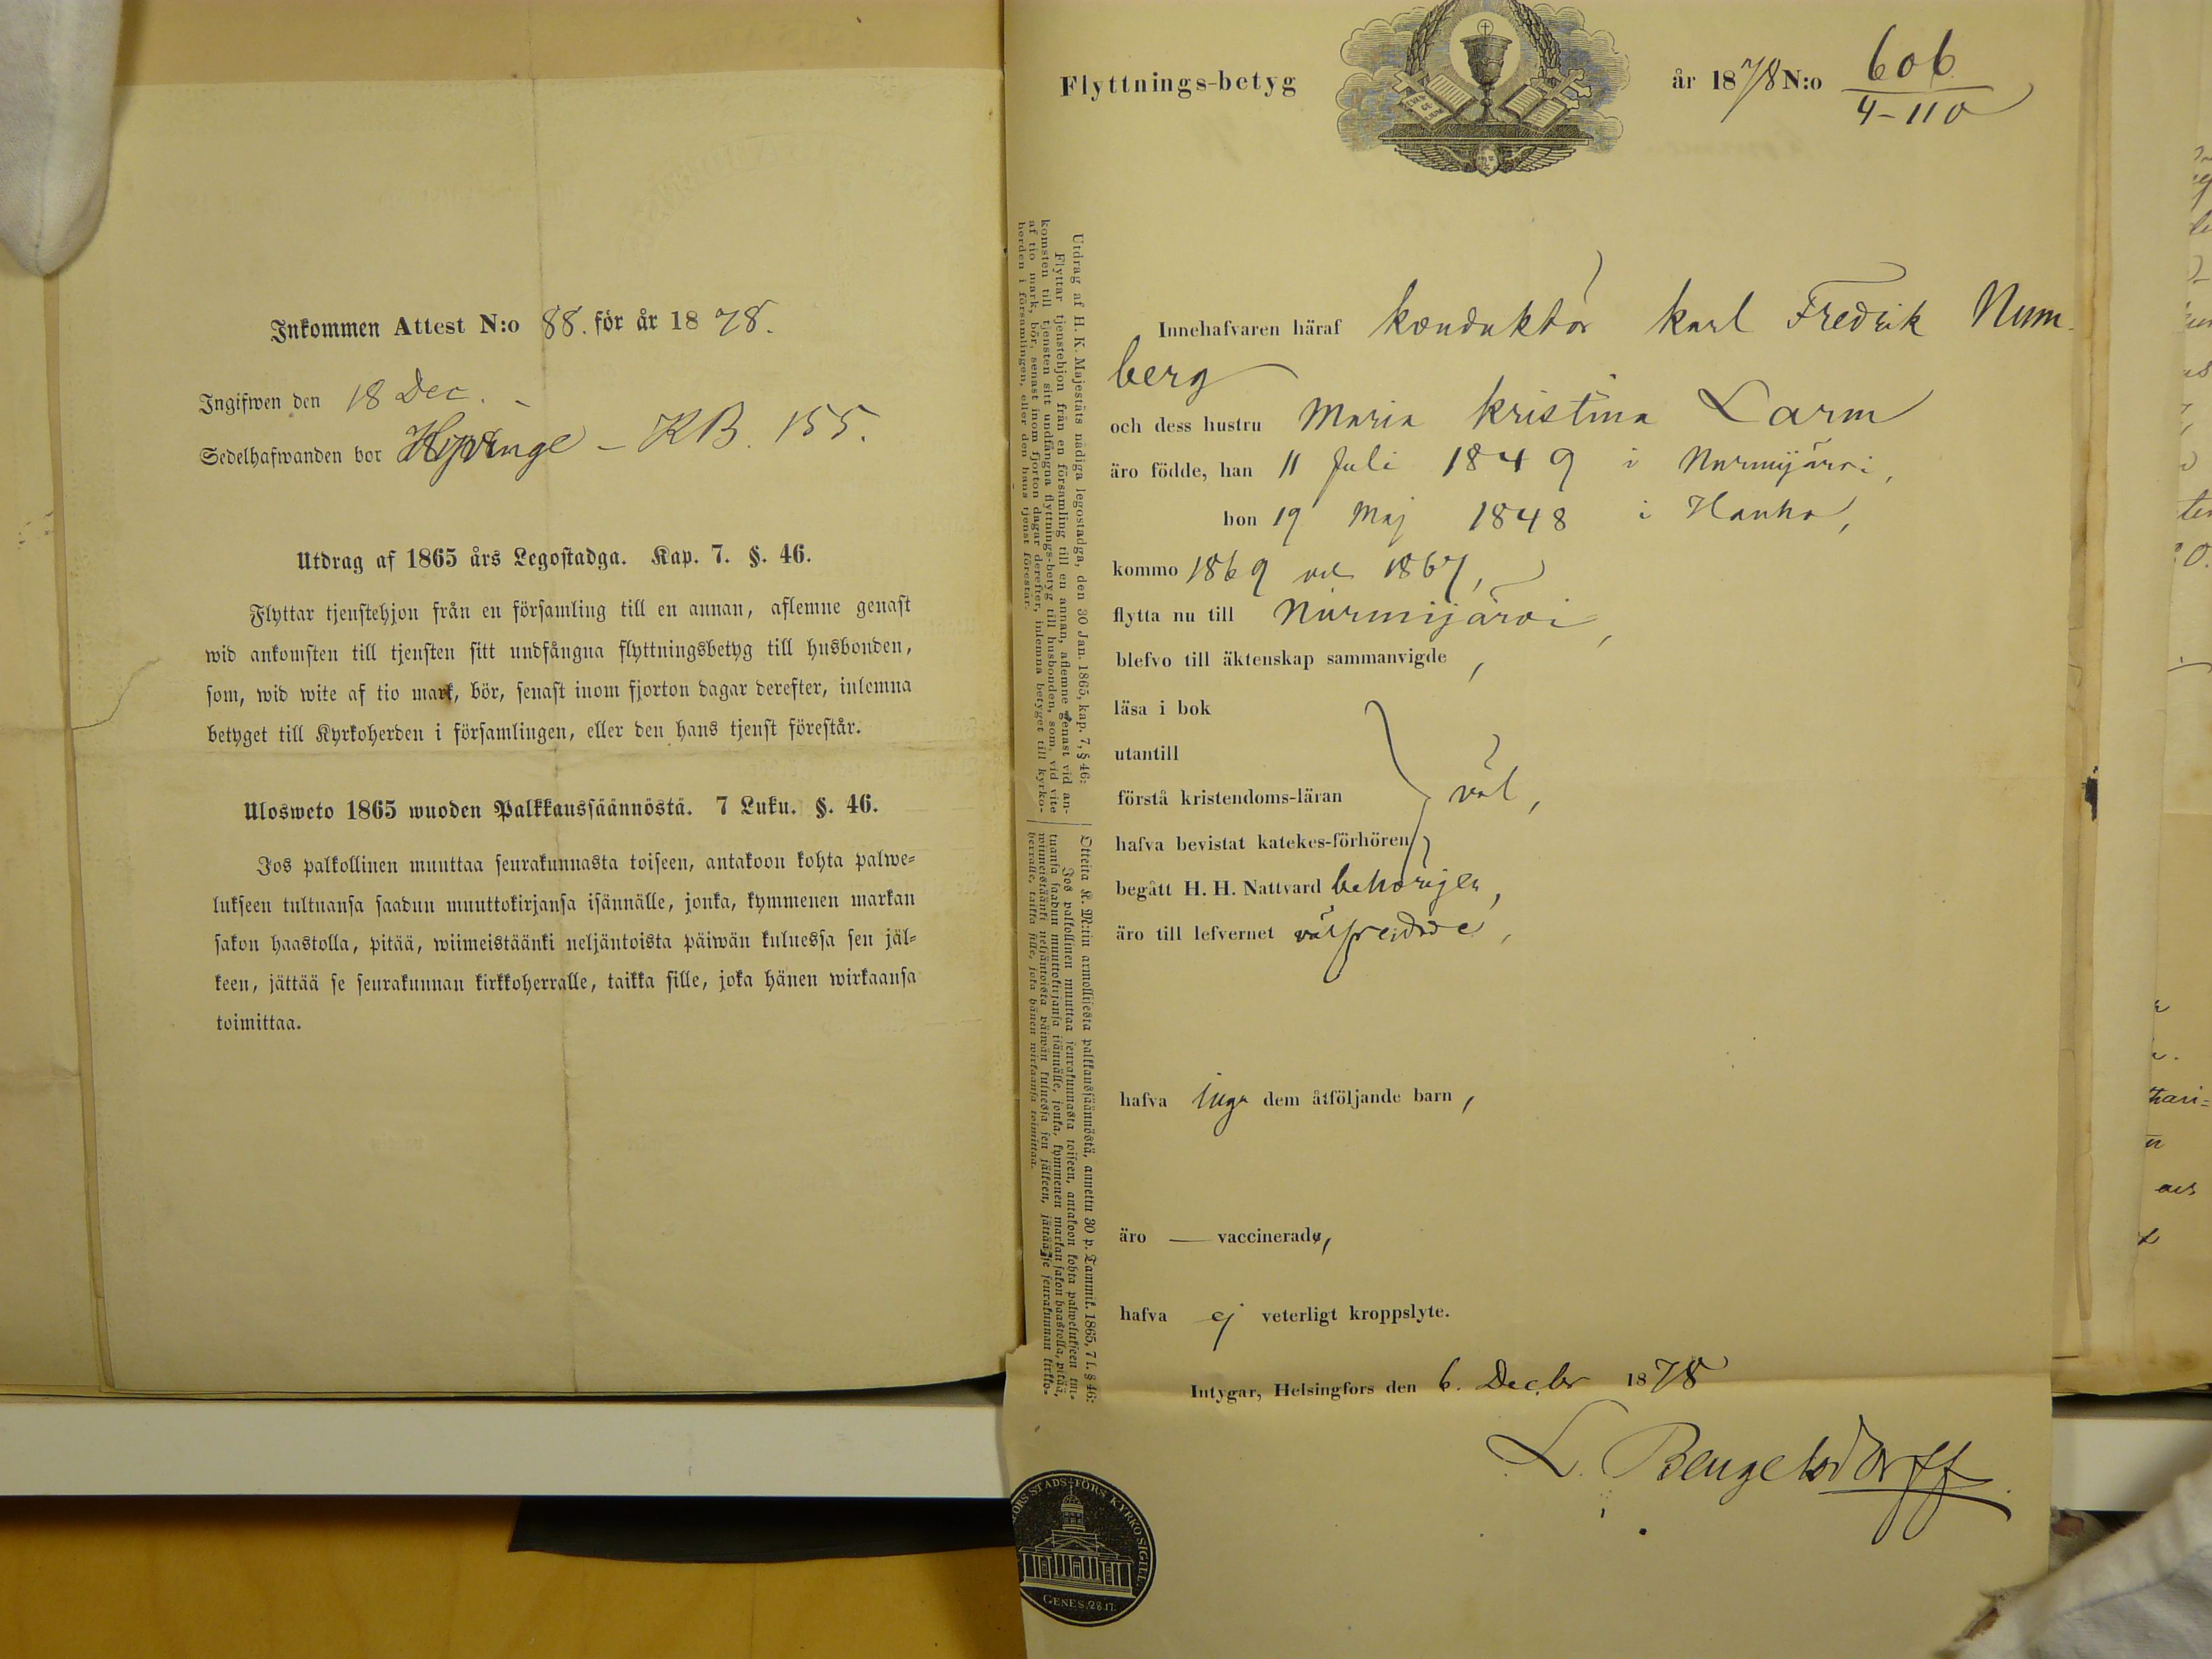 Inkommen Attest N:o 88. för år 1878.
Ingifwen den 18 Dec.
Sedelhafwanden bor Hyvinge – KB. 155.
Utdrag af 1865 års Legostadga. Kap. 7. §. 46.
Flyttar tjenstehjon från en församling till en annan, aflemne genast
wid ankomsten till tjensten sitt undfångna flyttningsbetyg till husbonden,
som, wid wite af tio mark, bör, senast inom fjorton dagar derefter, inlemna
betyget till Kyrkoherden i församlingen, eller den hans tjenst förestår.
Ulosweto 1865 wuoden Palkkaussäännöstä. 7 Luku. §. 46.
Jos palkollinen muuttaa seurakunnasta toiseen, antakoon kohta palwe=
lukseen tultuansa saadun muuttokirjansa isännälle, jonka, kymmenen markan
sakon haastolla, pitää, wiimeistäänki neljäntoista päiwän kuluessa sen jäl=
keen, jättää se seurakunnan kirkkoherralle, taikka sille, joka hänen wirkaansa
toimittaa.
Flyttnings-betyg
år 1878 N:o 606
4-110
Utdrag af H. K. Majestäts nådiga legostadga, den 30 Jan. 1865, kap. 7, § 46:
Flyttar tjenstehjon från en församling till en annan, aflemne genast vid an-
komsten till tjensten sitt undfångna flyttnings-betyg till husbonden, som, vid vite
af tio mark, bör, senast inom fjorton dagar derefter, inlemna betyget till kyrko-
herden i församlingen, eller den hans tjenst förestår.
Otteita K. M:tin armollisesta palkkaussäännöstä, annettu 30 p. Tammik. 1865, 7 l. § 46:
Jos palkollinen muuttaa seurakunnasta toiseen, antakoon kohta palwelukseen tul=
tuansa saadun muuttokirjansa isännälle, jonka, kymmenen markan sakon haastolla, pitää,
wiimeistäänki neljäntoista päiwän kuluessa sen jälkeen, jättää se seurakunnan kirkko=
herralle, taikka sille, joka hänen wirkaansa toimittaa.
Innehafvaren häraf konduktör Karl Fredrik Num-
berg
och dess hustru Maria Kristina Larm
äro födde, han 11 Juli 1849 i Nurmijärvi,
hon 19 Maj 1848 i Hauho,
kommo 1869 och 1867,
flytta nu till Nurmijärvi,
blefvo till äktenskap sammanvigde ,
läsa i bok
utantill
förstå kristendoms-läran väl,
hafva bevistat katekes-förhören,
begått H. H. Nattvard behörigen,
äro till lefvernet välfrejdade,
hafva inga dem åtföljande barn,
äro — vaccinerade,
hafva ej veterligt kroppslyte.
Intygar, Helsingfors den 6. Decbr 1878
L. Bengelsdorff
FORS STADS-FÖRS KYRKO SIGILL.
GENES. 28.17.